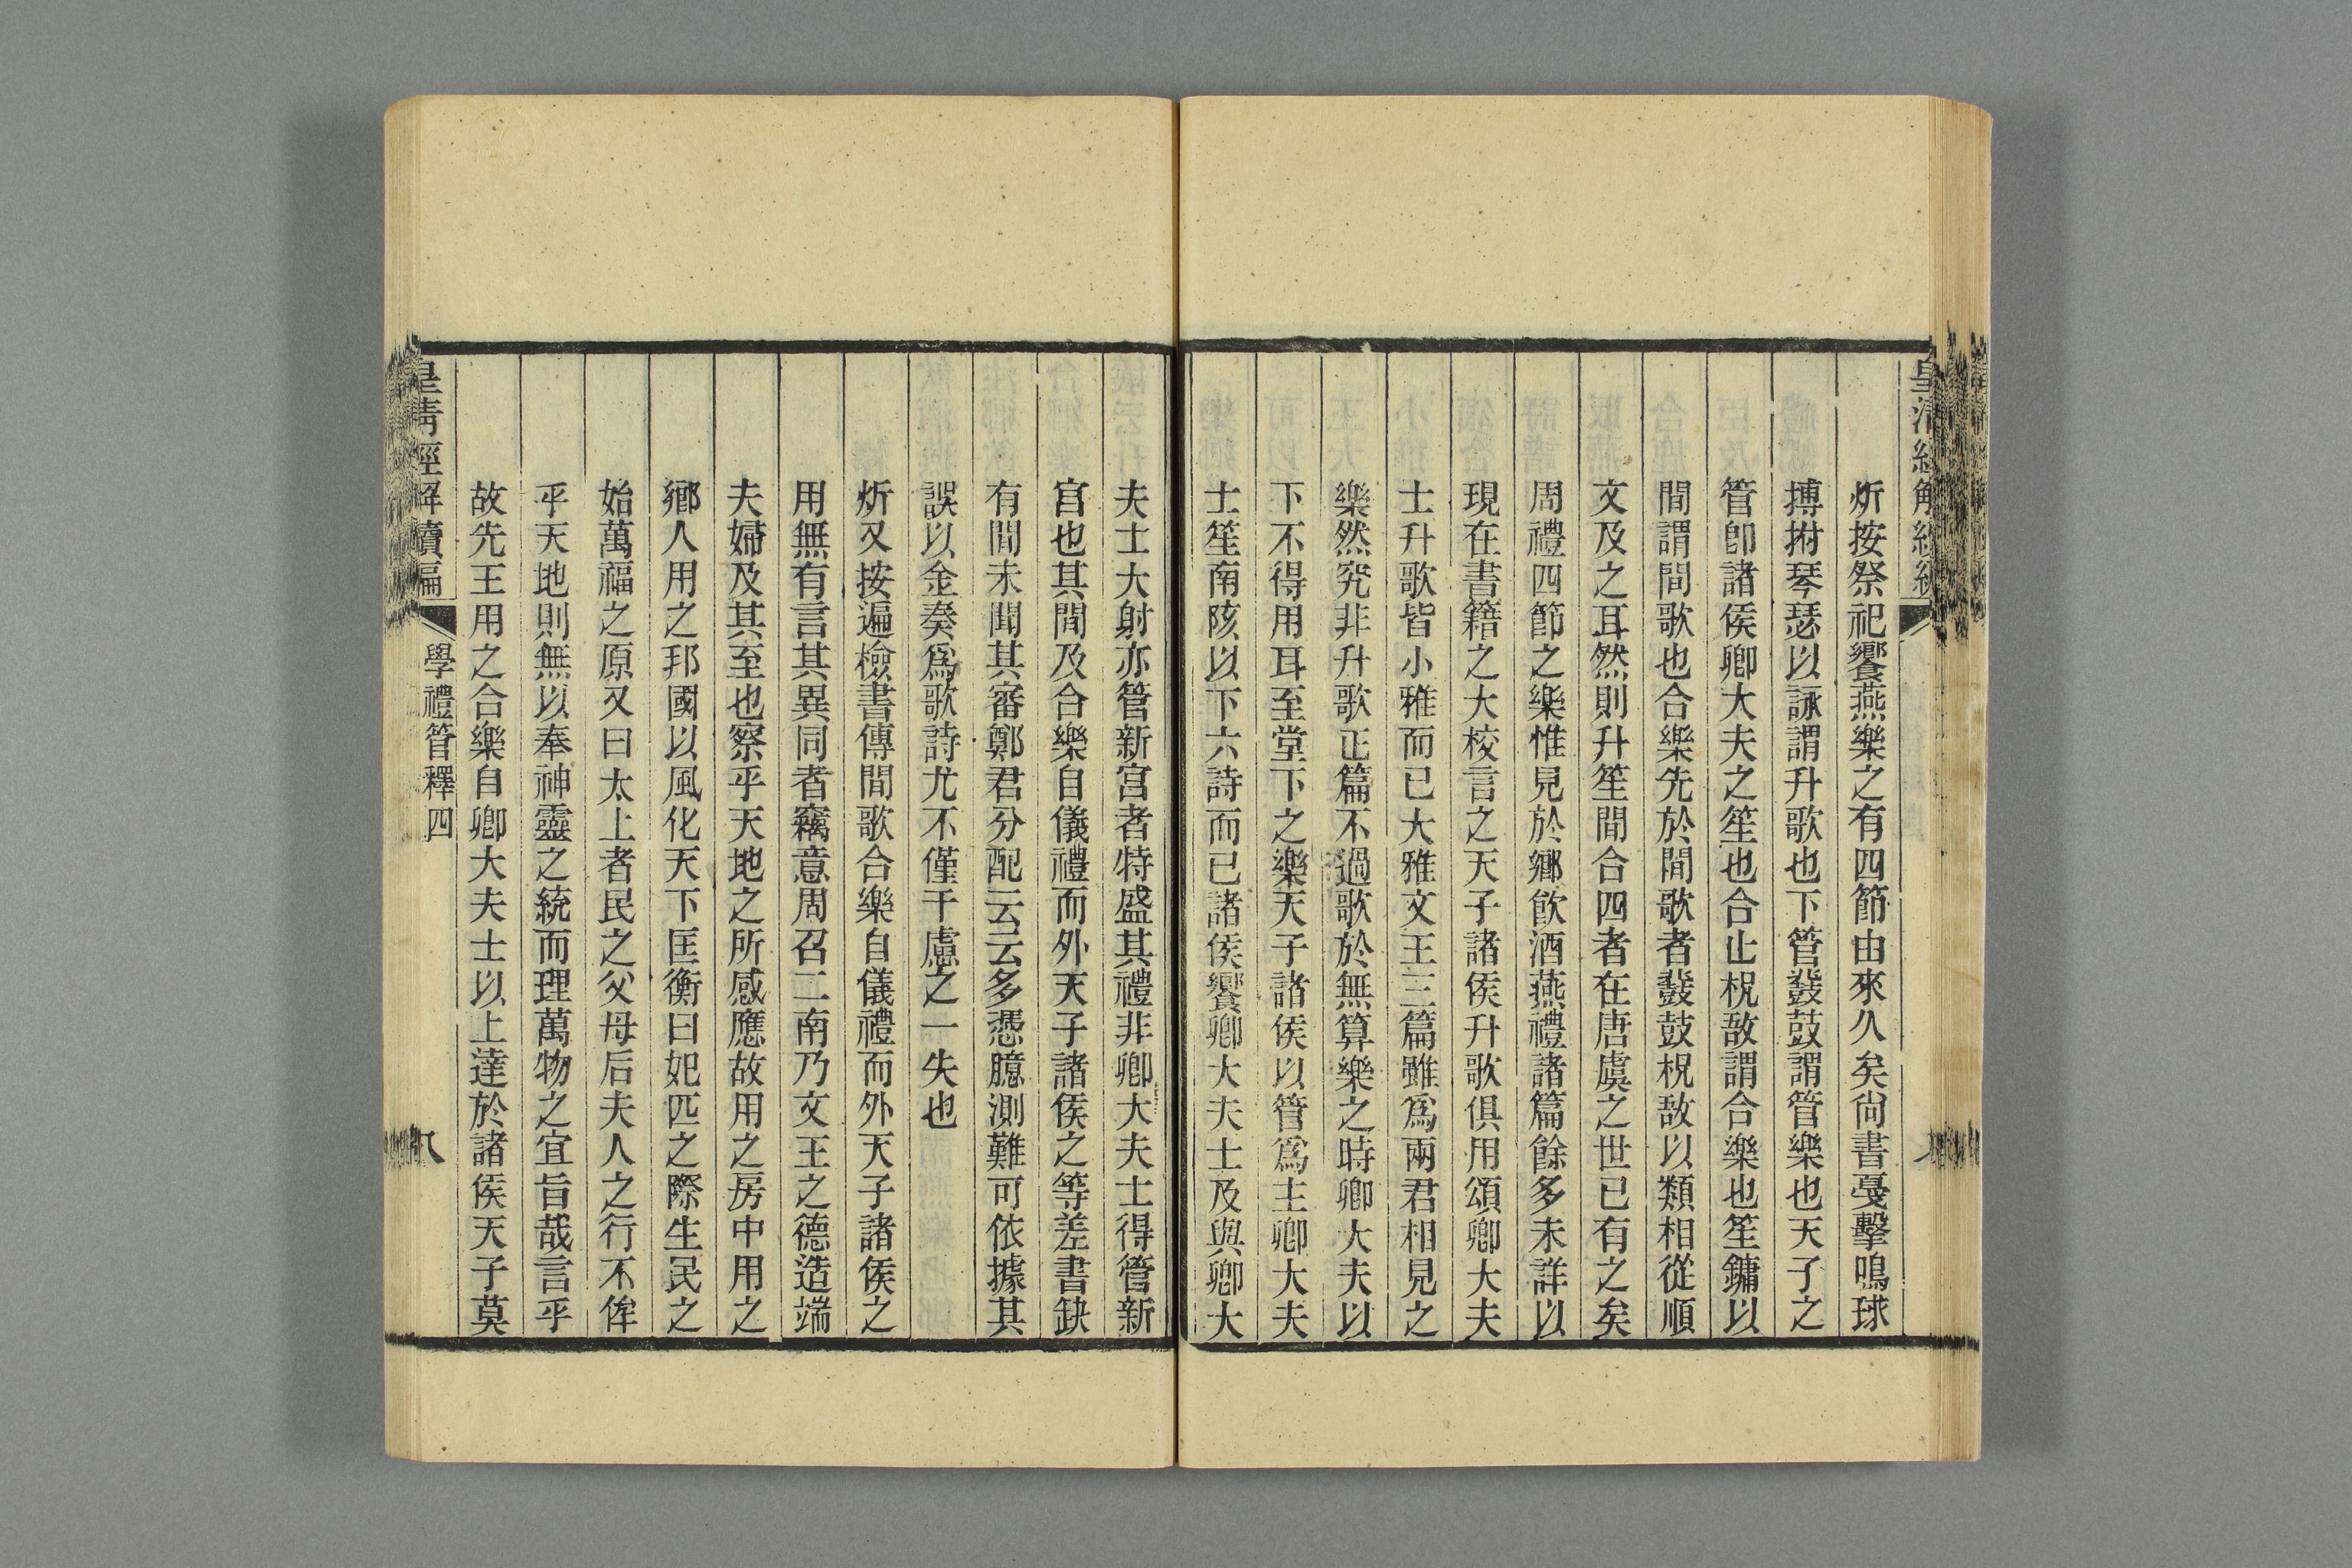 炘按祭祀饗燕樂之有四節由來久矣尙書戞擊鳴球
搏拊琴瑟以詠謂升歌也下管鼗鼓謂管樂也天子之
管卽諸侯卿大夫之笙也合止柷敔謂合樂也笙鏞以
間謂間歌也合樂先於間歌者鼗鼓柷敔以類相從順
文及之耳然則升笙間合四者在唐虞之世已有之矣
周禮四節之樂惟見於鄉飮酒燕禮諸篇餘多未詳以
現在書籍之大校言之天子諸侯升歌俱用頌卿大夫
士升歌皆小雅而已大雅文王三篇雖爲兩君相見之
樂然究非升歌正篇不過歌於無算樂之時卿大夫以
下不得用耳至堂下之樂天子諸侯以管爲主卿大夫
士笙南陔以下六詩而已諸侯饗卿大夫士及與卿大
夫士大射亦管新宮者特盛其禮非卿大夫士得管新
宮也其間及合樂自儀禮而外天子諸侯之等差書缺
有間未聞其審鄭君分配云云多憑臆測難可依據其
誤以金奏爲歌詩尤不僅千慮之一失也
炘又按遍檢書傳間歌合樂自儀禮而外天子諸侯之
用無有言其異同者竊意周召二南乃文王之德造端
夫婦及其至也察乎天地之所感應故用之房中用之
鄉人用之邦國以風化天下匡衡曰妃匹之際生民之
始萬福之原又曰太上者民之父母后夫人之行不侔
乎天地則無以奉神靈之統而理萬物之宜旨哉言乎
故先王用之合樂自卿大夫士以上達於諸侯天子莫
皇清經解續編
學禮管釋四
八